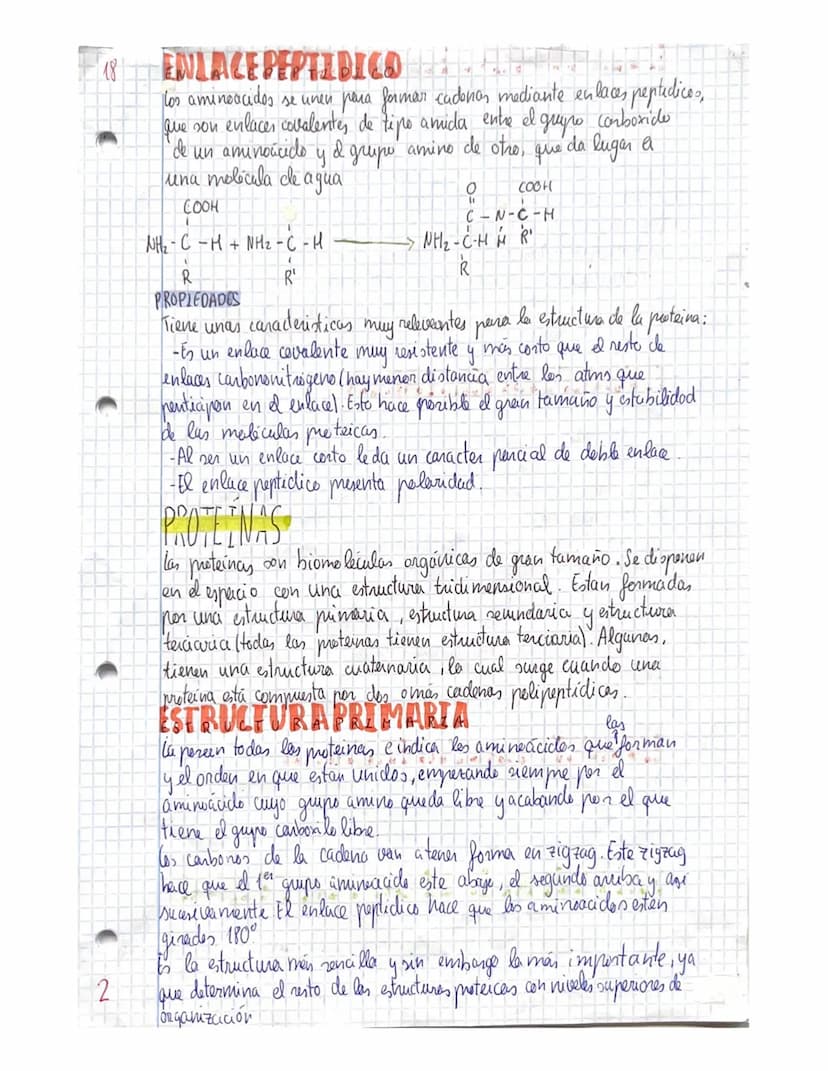 18
ENLACE PEPTIDICO
Los aminoacidos se unen para formar cadenas mediante enlaces peptidicos,
que son enlaces covalentes de tipo amida entre el grupo carboxido
de un aminoácido y el grupo amino de otro, que da lugar a
una molécula de agua
O COOH
COOH
C - N - C - H
NH2 - C - H + NH2 - C - H → NH2 - C - H H R'
R R' R
PROPIEDADES
Tiene unas caracteristicas muy relevantes para la estructura de la proteina:
-Es un enlace covalente muy resistente y más corto que el resto de
enlaces carbononitrógeno (hay menor distancia entre los atms que
participan en el enlace). Esto hace posible el gran tamaño y estabilidad
de las moléculas proteicas.
-Al ser un enlace corto le da un caracter parcial de doble enlace.
-El enlace peptidico presenta polaridad.
PROTEÍNAS
Las proteínas son biomoléculas orgánicas de gran tamaño. Se disponen
en el espacio con una estructura tridimensional. Estan formadas
por una estructura primaria, estructura secundaria y estructura
terciaria (todas las proteinas tienen estructura terciaria). Algunas,
tienen una estructura cuaternaria, lo cual surge cuando una
proteína está compuesta por dos o más cadenas polipeptídicas.
ESTRUCTURA PRIMARIA
La poseen todas las proteínas e indica los aminoácidos que las forman
y el orden en que estan unidos, empezando siempre por el
aminoácido cuyo grupo amino queda libre y acabando por el que
tiene el grupo carboxilo libre.
Los carbonos de la cadena van a tener forma en zigzag. Este zigzag
hace que el 1er grupo aminoacido este abajo, el segundo arriba y asi
sucesivamente. El enlace peptídico hace que los aminoacidos esten
girados 180º
Es la estructura más sencilla y sin embargo la más importante, ya
2
que determina el resto de las estructuras proteicas con niveles superiores de
organización